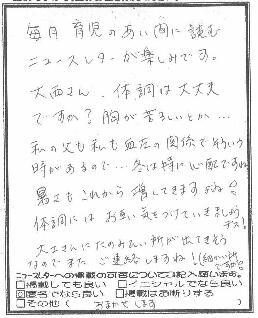 毎月育児のあい間に読む
ニュースレターが楽しみです。
大西さん、体調は大丈夫
ですか？胸が苦しいとか…
私の父も私も血圧の関係でそういう
時があるので…冬は特に心配ですね
暑さもこれから増してきますよね
体調にはお互い気をつけていきましょう
大工さんにたのみたい所が出てきそう
なのでまたご連絡しますね！(細かい所
ですが)
ニュースレターへの掲載の可否についてご記入願います。
□掲載しても良い □イニシャルでなら良い
☑匿名でなら良い □掲載はお断りする
□その他( おまかせします )